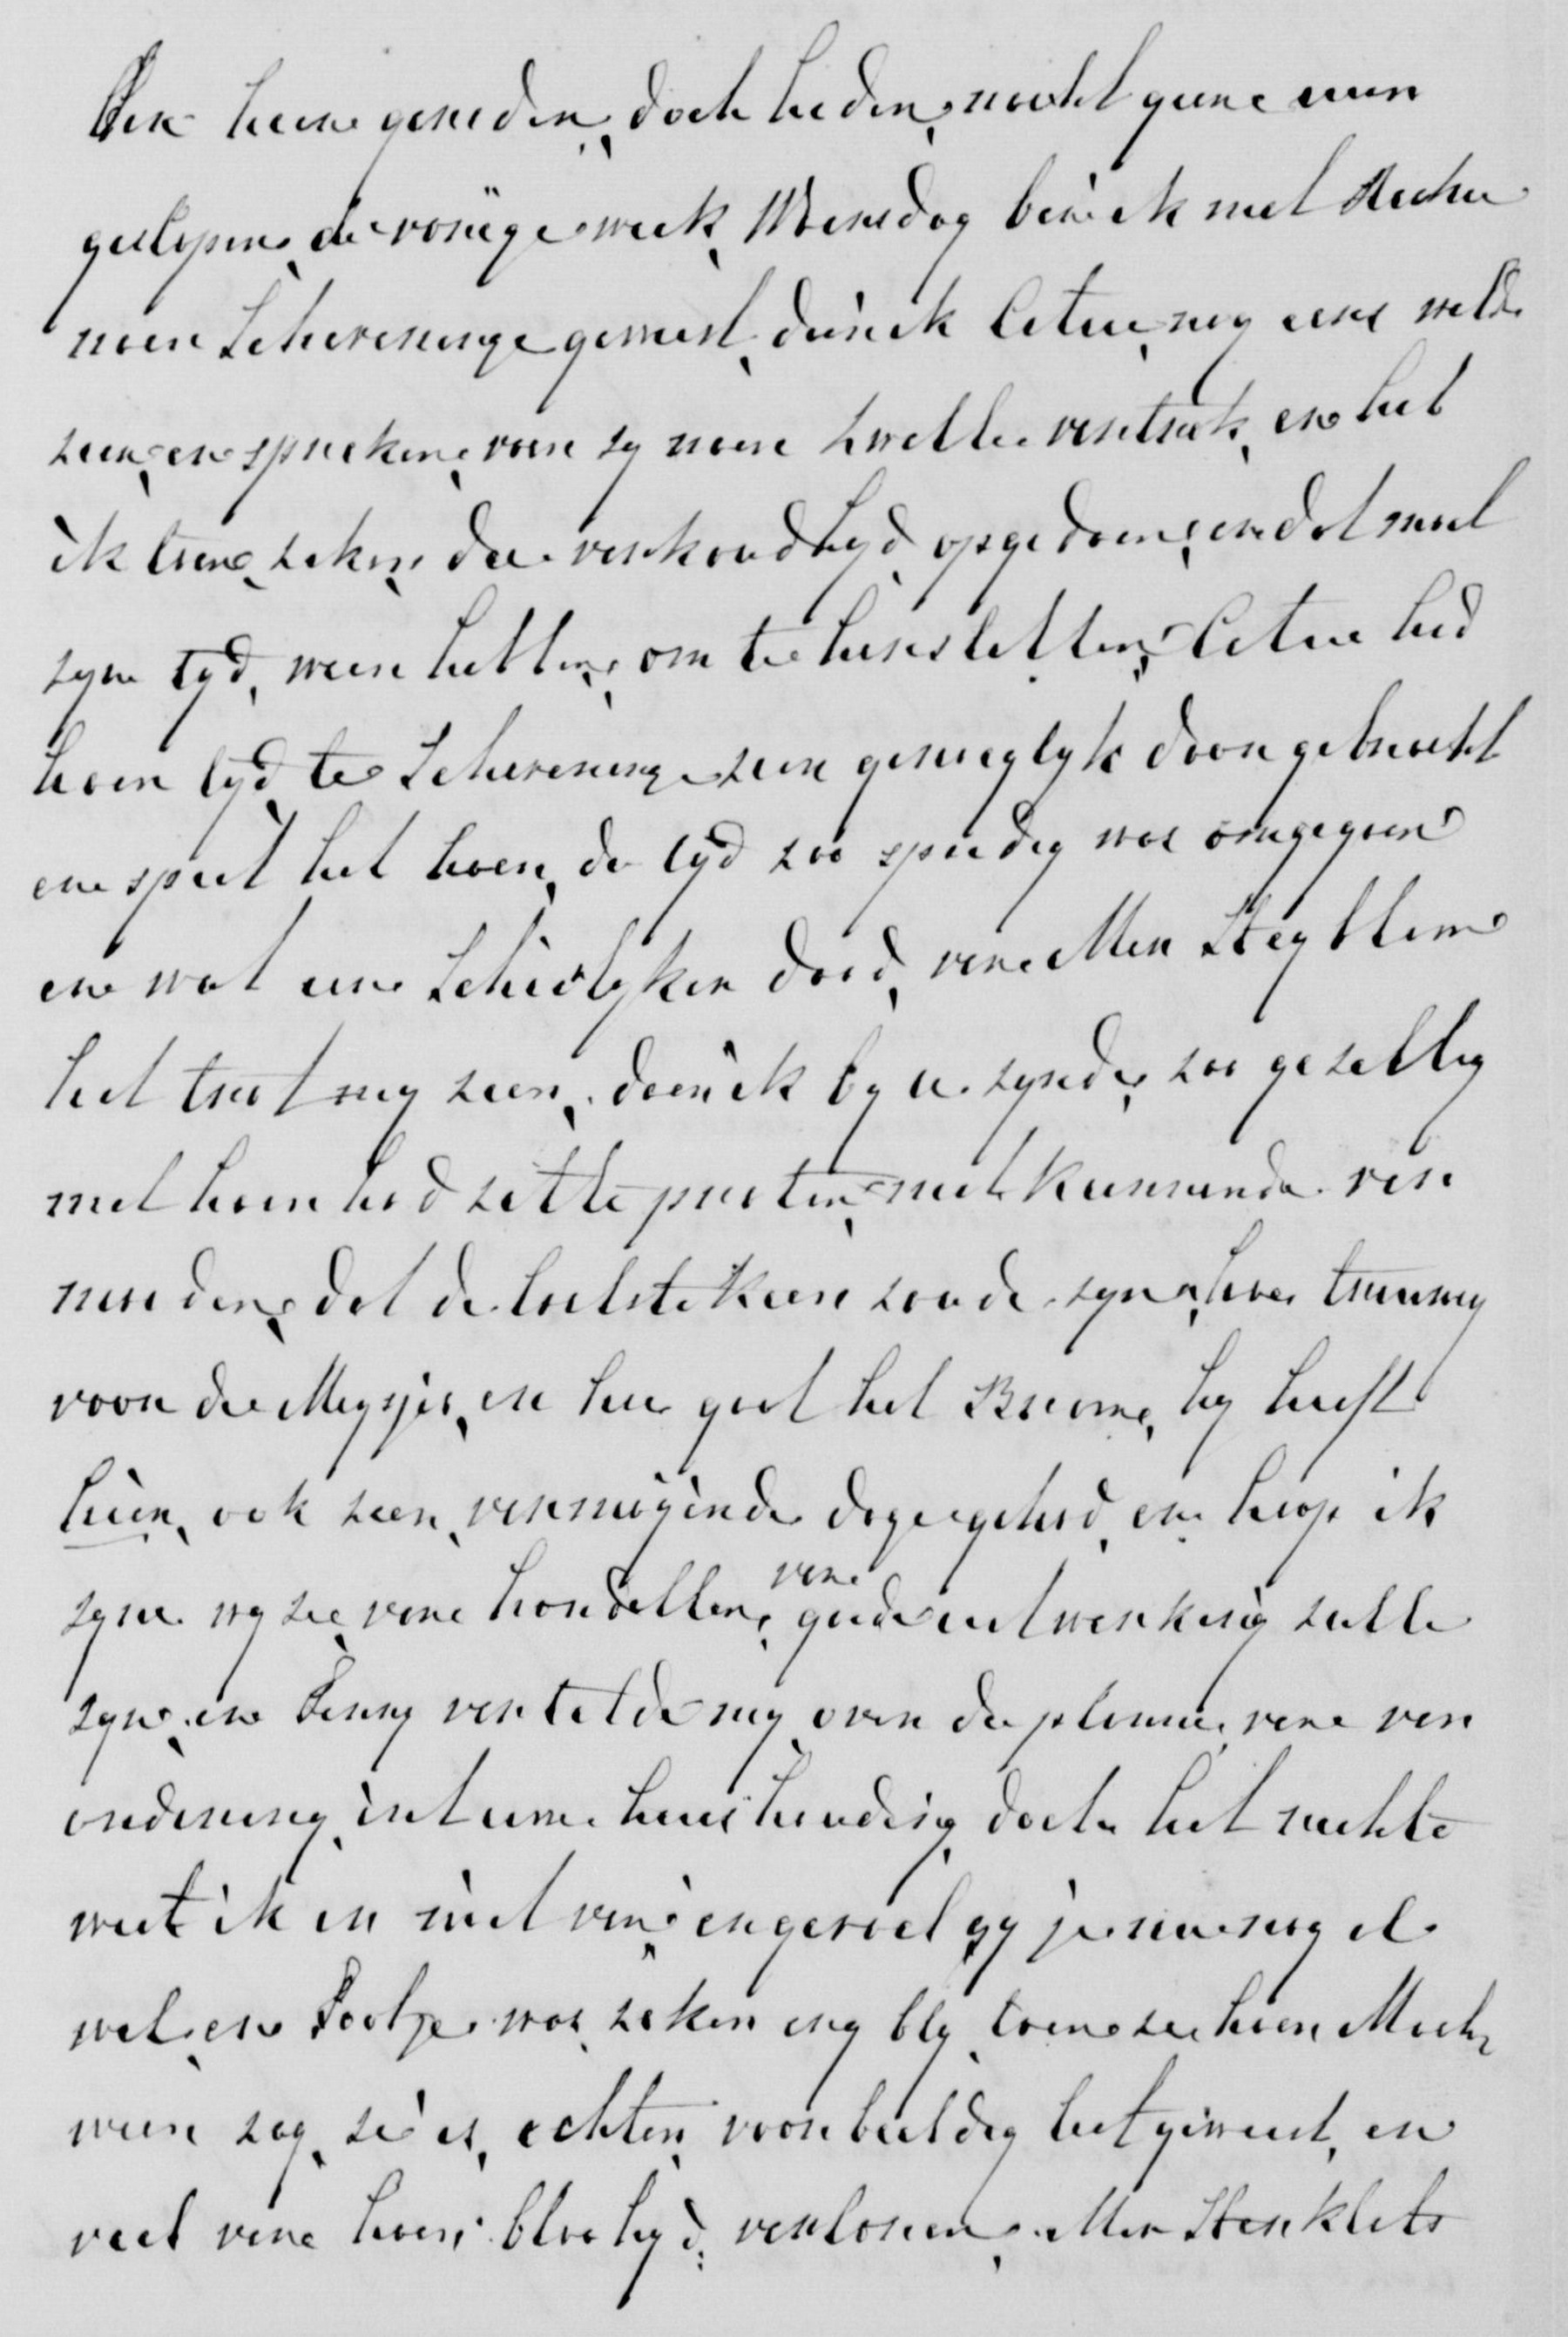 heen gereden, doch heden, nacht geene uur
geslapen, de vorige week, Woensdag ben ik met
naar Scheveninge geweest, daar ik Cateau, nog eens wilde
zien, en spreken, voor zy naar Zwolle vertrok, en heb
ik toen, zeker, die verkoudheyd, opgedaan, en dat moet
zyn tyd, weer hebben, om te herstellen, Cateau had
haar tyd te Scheveninge zeer genoeglyk doorgebracht
en speet het haar, de tyd zoo spoedig was omgegaan
en wat een Schielyker dood, van Mer
het trof my zeer, daar ik by u zynde, zoo gezellig
met haar had zitte praten, niet kunnende ver
moeden, dat de laatste keer zoude zyn, hoe treurig
voor de Mysjes, en hoe gaat het Bram, hy heeft
hier, ook zeer, vermoeijende dage gehad, en hoop ik
zyne wyze van handelen, van goede uitwerking zulle
zyn, en Jenny vertelde my, over de planne, van ver
andering, int uwe huishouding, doch het rechte
weet ik er niet van, in geval gy je nu nog al
wel, en Dootje was, zeker erg bly, toen ze haar Moeder
weer zag, ze is, echter, voorbeeldig lief geweest, en
veel van haar blooheyd, verloren, Mer